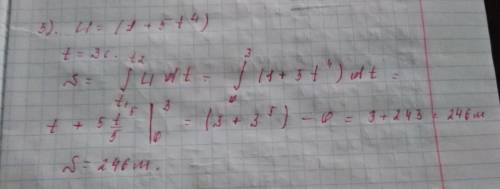 3). U = (1 + 5t⁴)
t = 3c.
S = ∫ₜ₁ᵗ² U dt = ∫₀³ (1 + 5t⁴) dt =
t + 5 t⁵/5 |₀³ = (3 + 3⁵) - 0 = 3 + 243 = 246 м
S = 246 м.